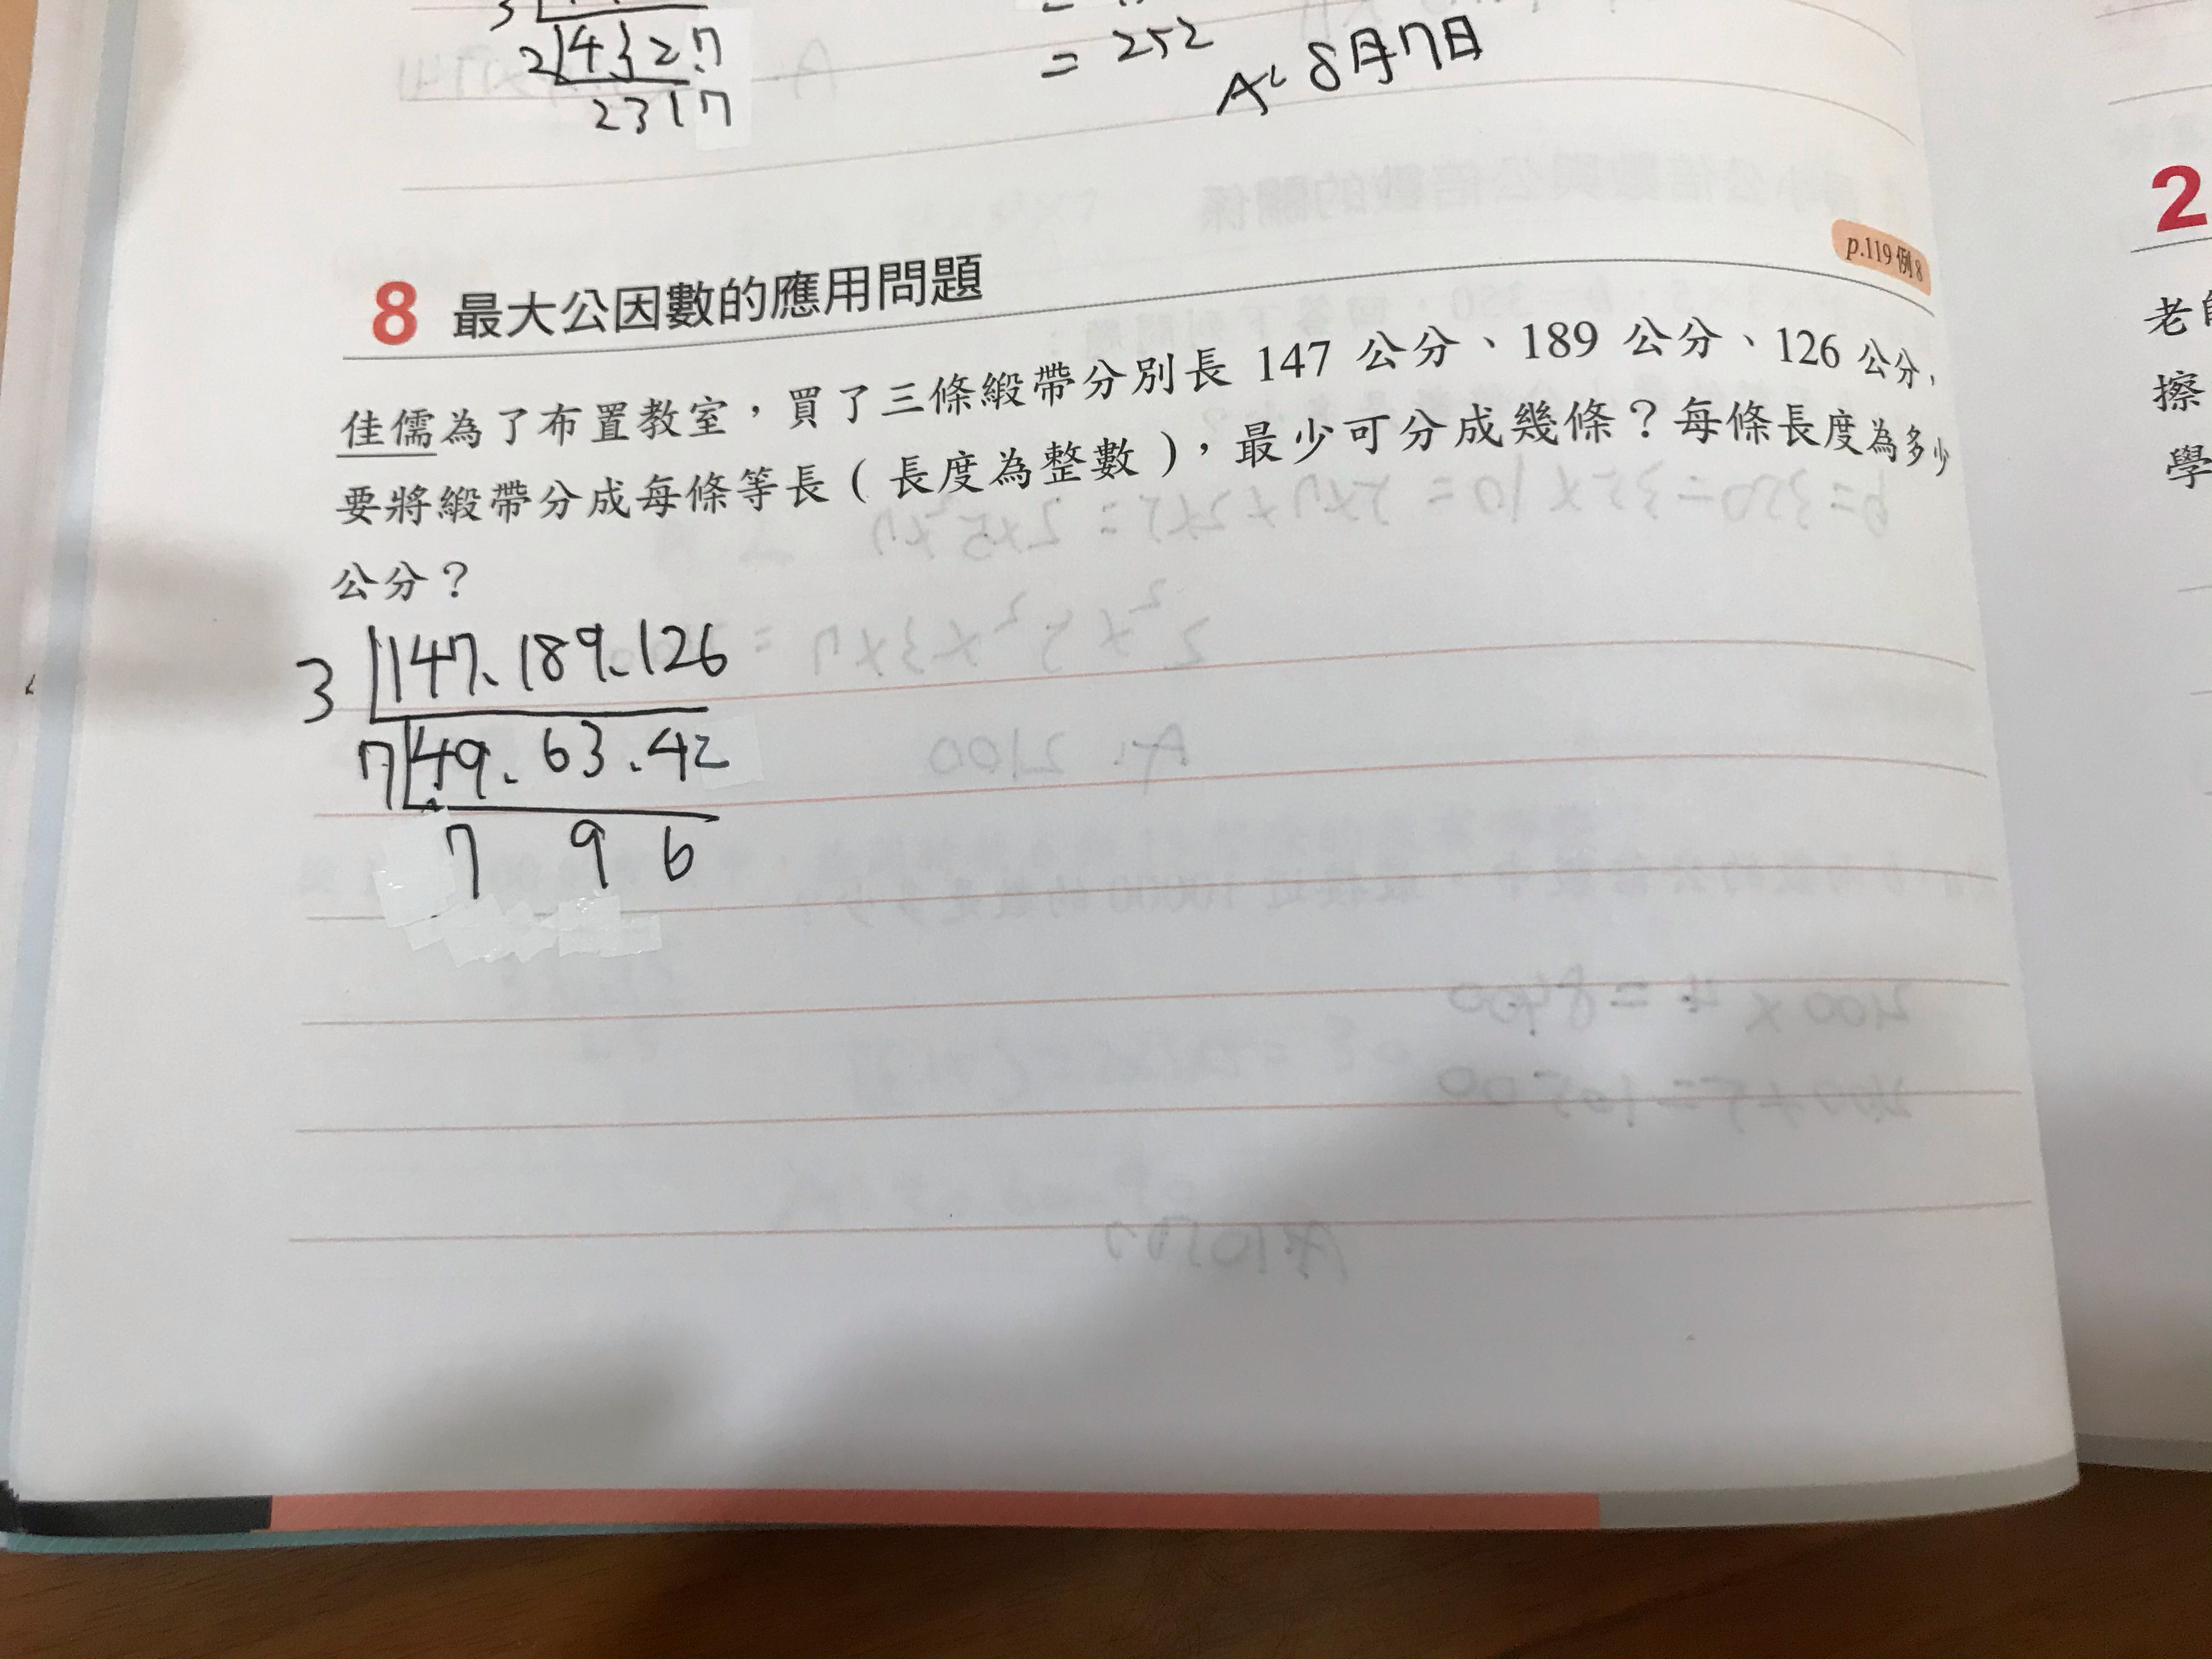 3
2 432 7
231 7
= 252
A: 8月7日
8 最大公因數的應用問題
p.119例8
佳儒為了布置教室，買了三條緞帶分別長 147 公分、189 公分、126 公分，
要將緞帶分成每條等長（長度為整數），最少可分成幾條？每條長度為多少
公分？
3 147、189、126
7 49、63、42
7 9 6
2
老
擦
學